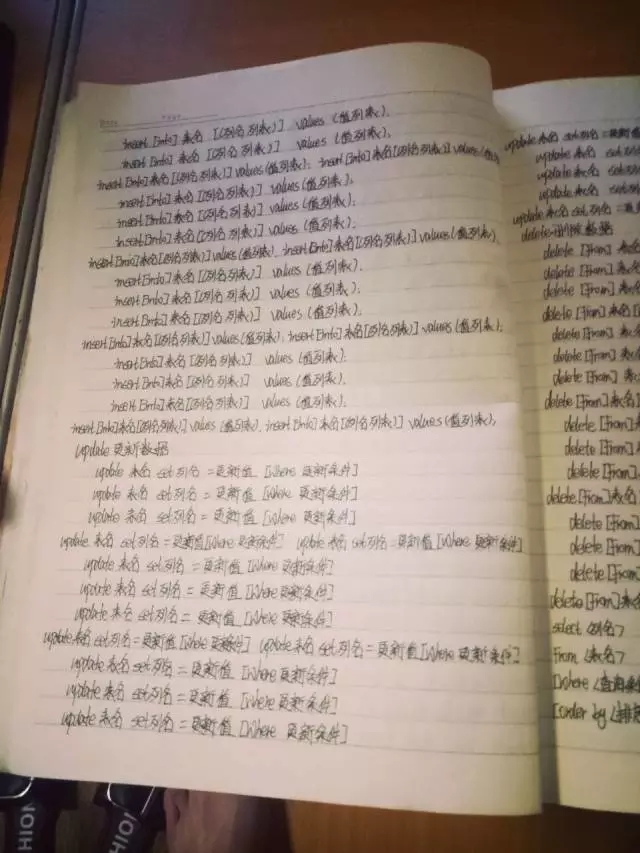 insert [into] 表名 [(列名列表)] values (值列表).
insert [into] 表名 [(列名列表)] values (值列表).
insert [into] 表名 [(列名列表)] values (值列表); insert [into] 表名 [(列名列表)] values (值列表)
insert [into] 表名 [(列名列表)] values (值列表);
insert [into] 表名 [(列名列表)] values (值列表).
insert [into] 表名 [(列名列表)] values (值列表).
insert [into] 表名 [(列名列表)] values (值列表). insert [into] 表名 [(列名列表)] values (值列表).
insert [into] 表名 [(列名列表)] values (值列表);
insert [into] 表名 [(列名列表)] values (值列表).
insert [into] 表名 [(列名列表)] values (值列表).
insert [into] 表名 [(列名列表)] values (值列表); insert [into] 表名 [(列名列表)] values (值列表);
insert [into] 表名 [(列名列表)] values (值列表);
insert [into] 表名 [(列名列表)] values (值列表).
insert [into] 表名 [(列名列表)] values (值列表).
insert [into] 表名 [(列名列表)] values (值列表). insert [into] 表名 [(列名列表)] values (值列表);
update 更新数据
update 表名 set 列名 = 更新值 [Where 更新条件]
update 表名 set 列名 = 更新值 [Where 更新条件]
update 表名 set 列名 = 更新值 [Where 更新条件]
update 表名 set 列名 = 更新值 [Where 更新条件] update 表名 set 列名 = 更新值 [Where 更新条件]
update 表名 set 列名 = 更新值 [Where 更新条件]
update 表名 set 列名 = 更新值 [Where 更新条件]
update 表名 set 列名 = 更新值 [Where 更新条件]
update 表名 set 列名 = 更新值 [Where 更新条件] update 表名 set 列名 = 更新值 [Where 更新条件]
update 表名 set 列名 = 更新值 [Where 更新条件]
update 表名 set 列名 = 更新值 [Where 更新条件]
update 表名 set 列名 = 更新值 [Where 更新条件]
update 表名 set 列名 = 更新值
update 表名 set
update 表名 set
update 表名 set
update 表名 set 列名 =
delete 删除数据
delete [From] 表
delete [From] 表名
delete [From] 表名
delete [From] 表
delete [From] 表
delete [From] 表
delete [From] 表
delete [From] 表名
delete [From]
delete [From]
delete [From]
delete [From] 表名
delete [From]
delete [From]
delete [From]
delete [From] 表名
select <列名>
From <表名>
[Where <查询条
[order by <排
HION
HION